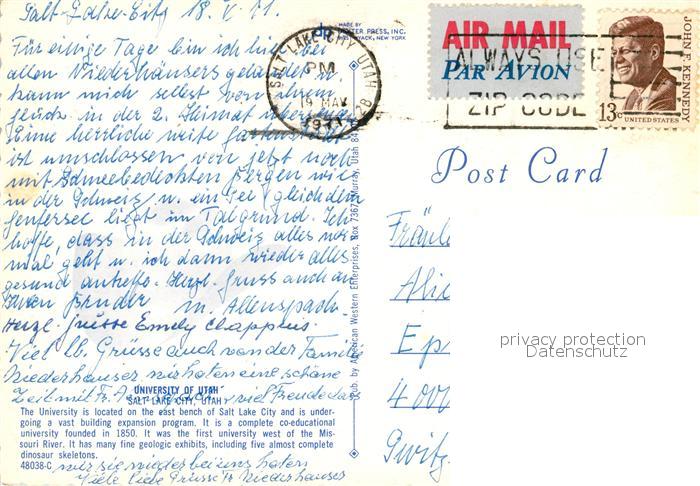 Salt-Lake-City 18. V. 71.
Für einige Tage bin ich hier bei
allen Niederhäusers gelandet u.
kann mich selbst von ihrem
Glück in der 2. Heimat
Eine herrliche weite Gartenstadt
ist umschlossen von jetzt noch
mit Schneebedeckten Bergen wie
in der Schweiz u. ein See gleich dem
Genfersee liegt im Talgrund. Ich
hoffe, dass in der Schweiz alles nor-
mal geht u. ich dann wieder alles
gesund antreffe. Herzl. Gruss auch an
Ihren Bruder M. Allenspach.
Herzl. Grüsse Emely Clappius.
Viel lb. Grüsse auch von der Familie
Niederhauser wir haten eine schöne
Zeit mit Fr. viel Freude das
wir sie wieder bei uns haten
Viele liebe Grüsse Fr Niederhauser
UNIVERSITY OF UTAH
SALT LAKE CITY, UTAH
The University is located on the east bench of Salt Lake City and is under-
going a vast building expansion program. It is a complete co-educa-
tional university founded in 1850. It was the first university west of the Mis-
souri River. It has many fine geologic exhibits, including five almost complete
dinosaur skeletons.
48038-C
Pub. by American Western Enterprises, Box 7367, Murray, Utah 84
MADE BY
DEXTER PRESS, INC.
WEST NYACK, NEW YORK
SALT LAKE CITY, UTAH
PM
19 MAY
1971
AIR MAIL
PAR AVION
ALWAYS USE
ZIP CODE
JOHN F. KENNEDY
13c
UNITED STATES
Post Card
Fräul
Alic
Ep
4000
privacy protection
Datenschutz